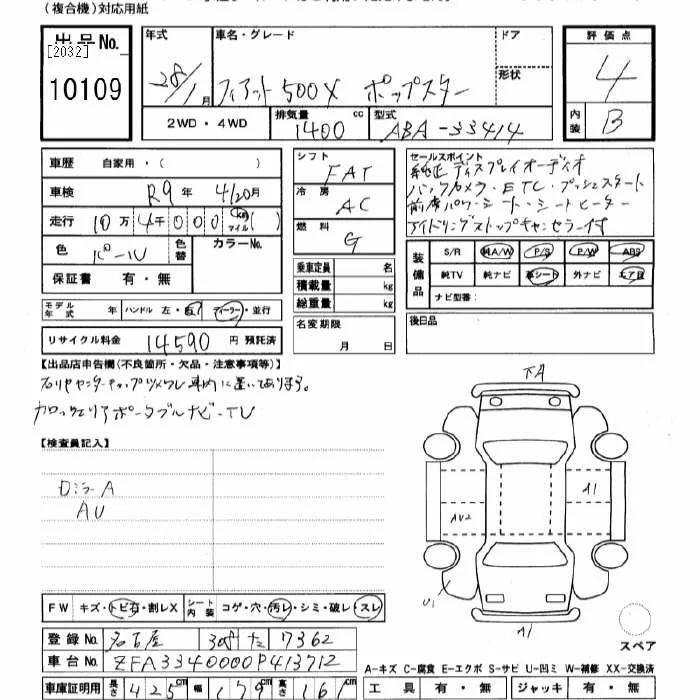 (複合機)対応用紙
出品No.
[2032]
10109
年式 車名・グレード ドア 評価点
28/1月 フィアット500X ポップスター 形状 4
2WD・4WD 排気量 1400 cc 型式 ABA-33414 内装 B
車歴 自家用・( )
車検 R9年 4/20月
走行 10万4千000 km マイル ( )
色 パール 色替 カラーNo.
保証書 有・無
モデル年式 年 ハンドル 左・右 ディーラー・並行
リサイクル料金 14590 円 預託済
シフト FAT
冷房 AC
燃料 G
乗車定員 名
積載量 kg
総重量 kg
名変期限
月 日
セールスポイント
純正ディスプレイオーディオ
バックカメラ・ETC・プッシュスタート
前席パワーシート・シートヒーター
アイドリングストップキャンセラー付
装備品 S/R 純A/W P/S P/W ABS
純TV 純ナビ 革シート 外ナビ エアB
ナビ型番:
後日品
【出品店申告欄(不良箇所・欠品・注意事項等)】
右リヤセンターキャップツメワレ車内に置いてあります。
カロッツェリアポータブルナビ・TV
【検査員記入】
ロミラーA
AU
FA
A1
AU2
U1
A1
スペア
FW キズ・トビ石・割レX シート内装 コゲ・穴・汚レ・シミ・破レ・スレ
登録No. 名古屋 308 た 7362
車台No. ZFA3340000P413712
車庫証明用 長さ 425cm 幅 179cm 高さ 161cm
A-キズ C-腐食 E-エクボ S-サビ U-凹ミ W-補修 XX-交換済
工具 有・無 ジャッキ 有・無